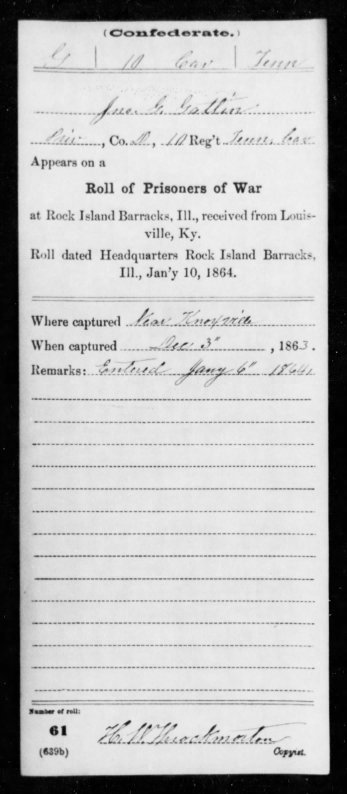 (Confederate.)
G | 10 Cav | Tenn
Jno. G. Gatlin
Priv, Co. D, 10 Reg't Tenn. Cav.
Appears on a
Roll of Prisoners of War
at Rock Island Barracks, Ill., received from Louis-
ville, Ky.
Roll dated Headquarters Rock Island Barracks,
Ill., Jan'y 10, 1864.
Where captured Near Knoxville
When captured Dec 3", 1863.
Remarks: Entered Jany 6" 1864,
Number of roll:
61
(639b)
H. W. Throckmorton
Copyist.